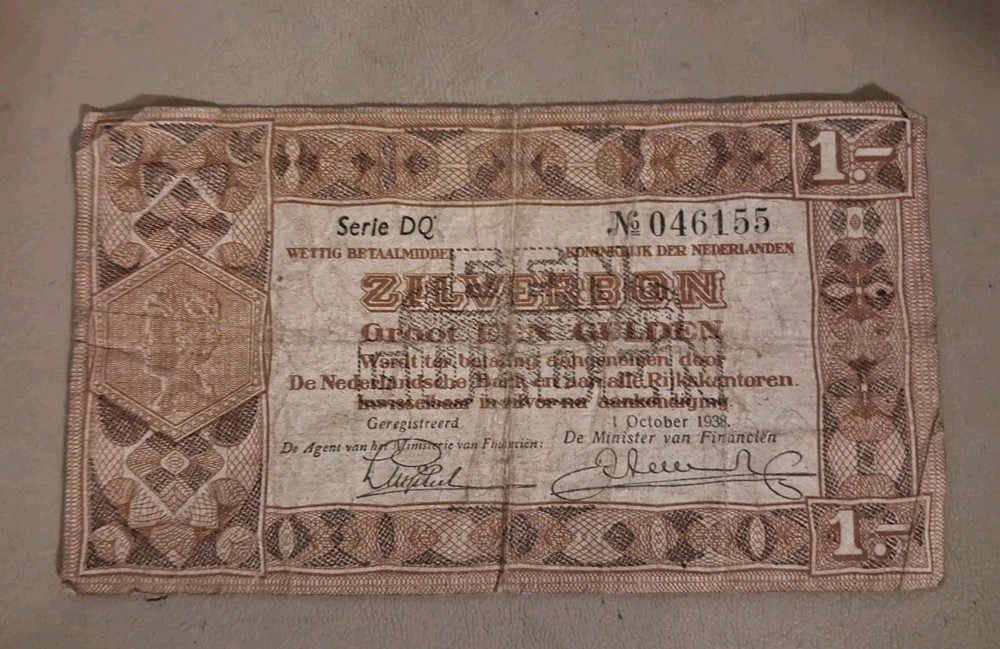 1.–
Serie DQ № 046155
WETTIG BETAALMIDDEL KONINKRIJK DER NEDERLANDEN
ZILVERBON
Groot EEN GULDEN
Wordt ter betaling aangenomen door
De Nederlandsche Bank en aan alle Rijkskantoren.
Inwisselbaar in zilver na aankondiging.
Geregistreerd 1 October 1938.
De Agent van het Ministerie van Financiën: De Minister van Financiën
1.–